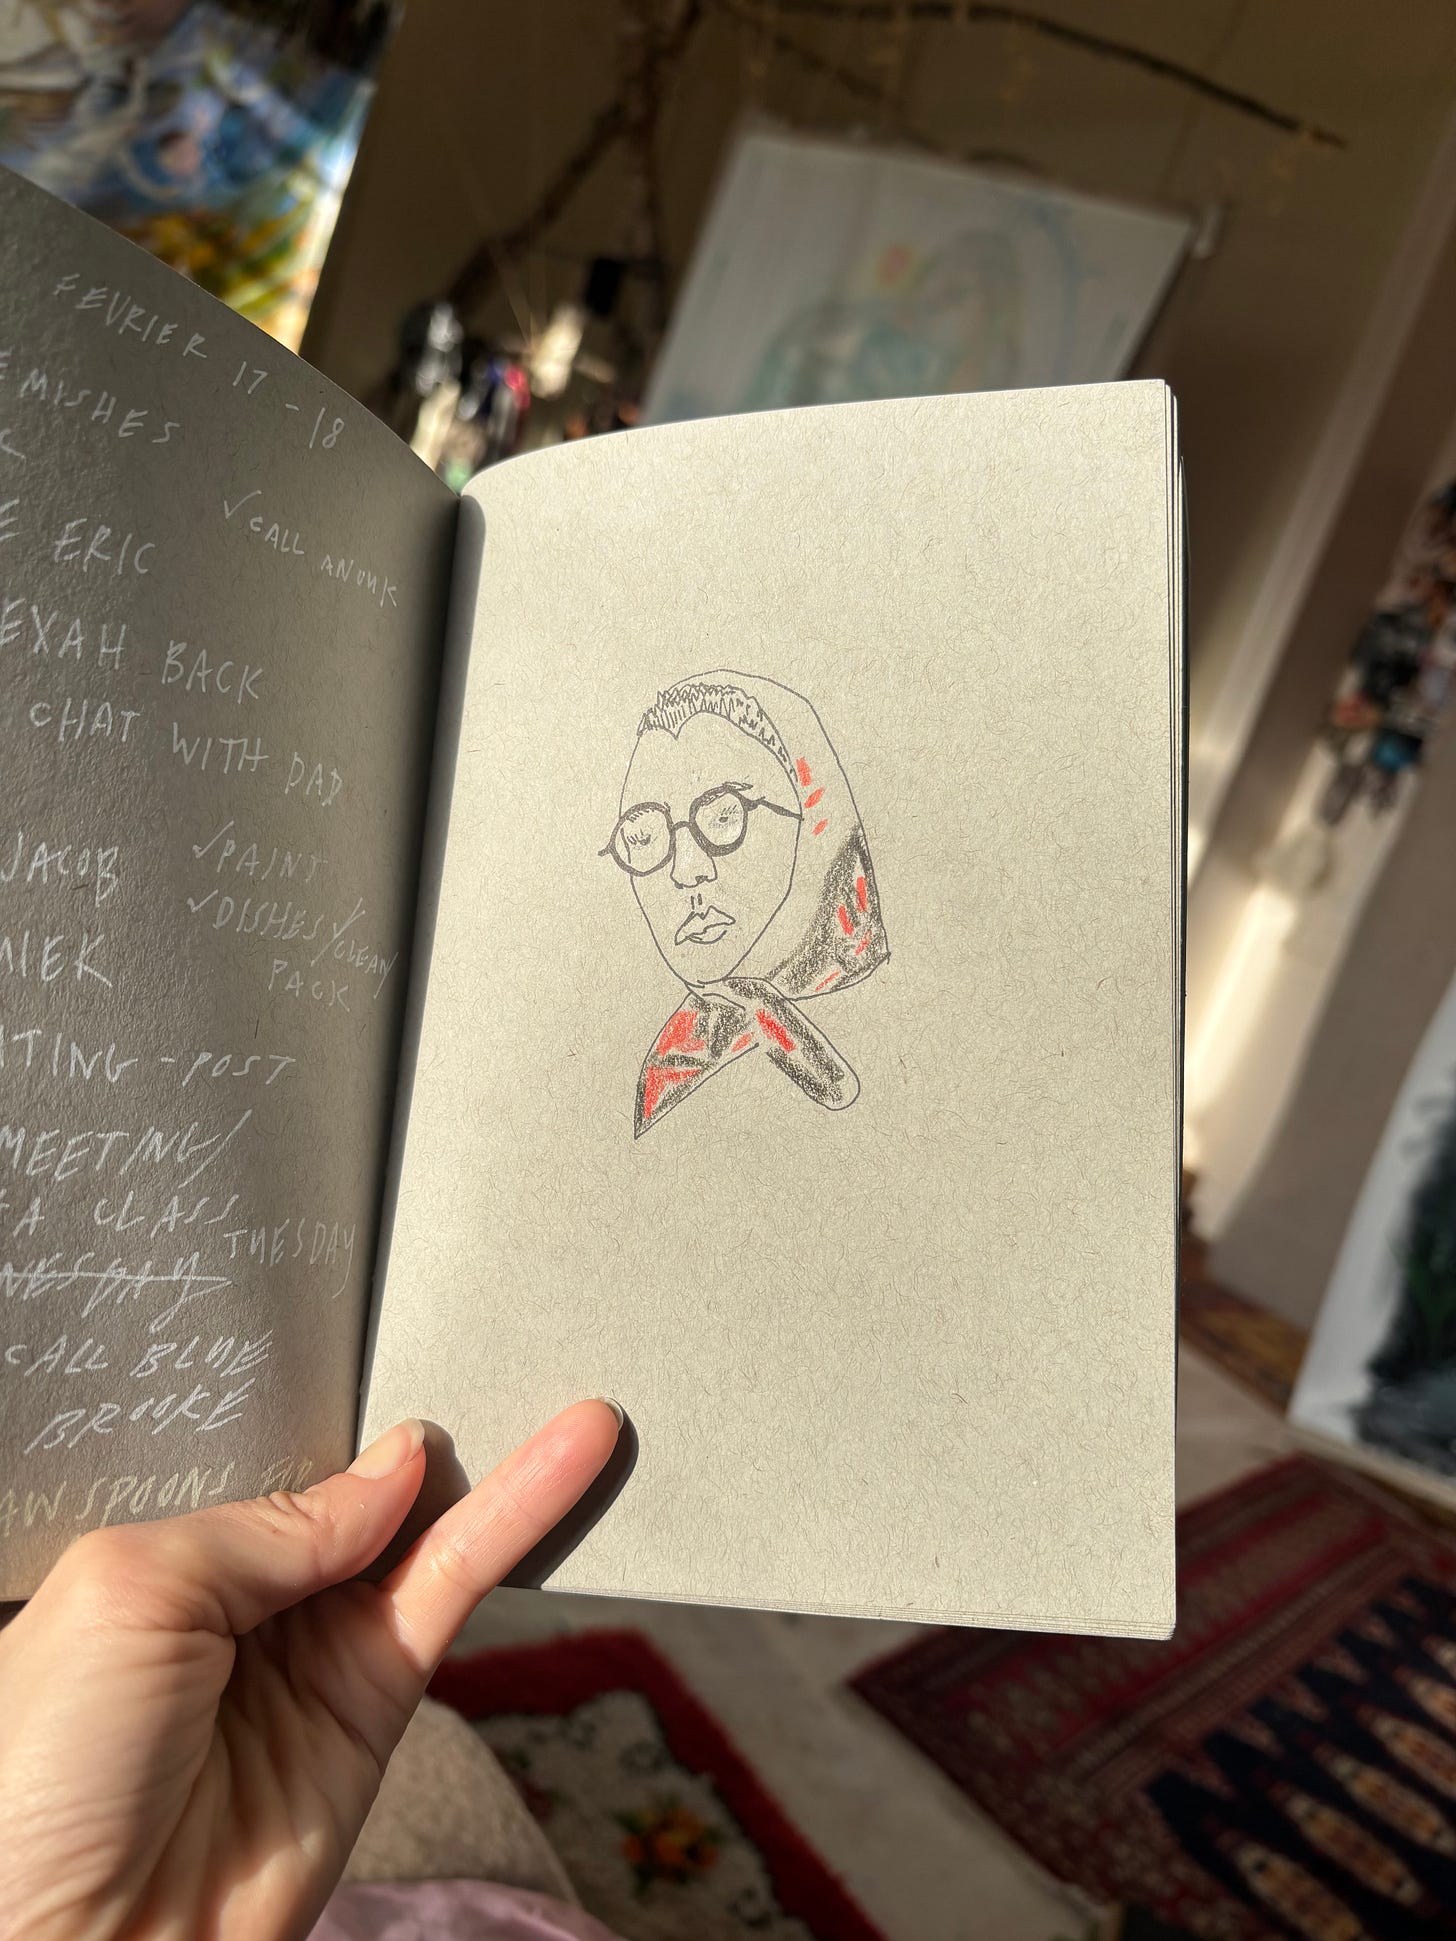 FEVRIER 17-18
MISHES
✓CALL ANOUK
ERIC
EXAH BACK
CHAT WITH DAD
JACOB
✓PAINT
✓DISHES/CLEAN/
PACK
NIEK
ATING - POST
MEETING/
A CLASS
TUESDAY
NESDAY
CALL BLUE
BROOKE
AW SPOONS FOR